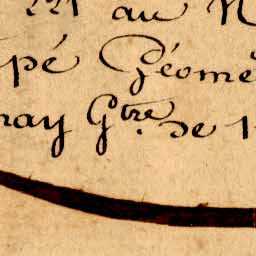 au N
pé Géomè
nay Gtre. de 1